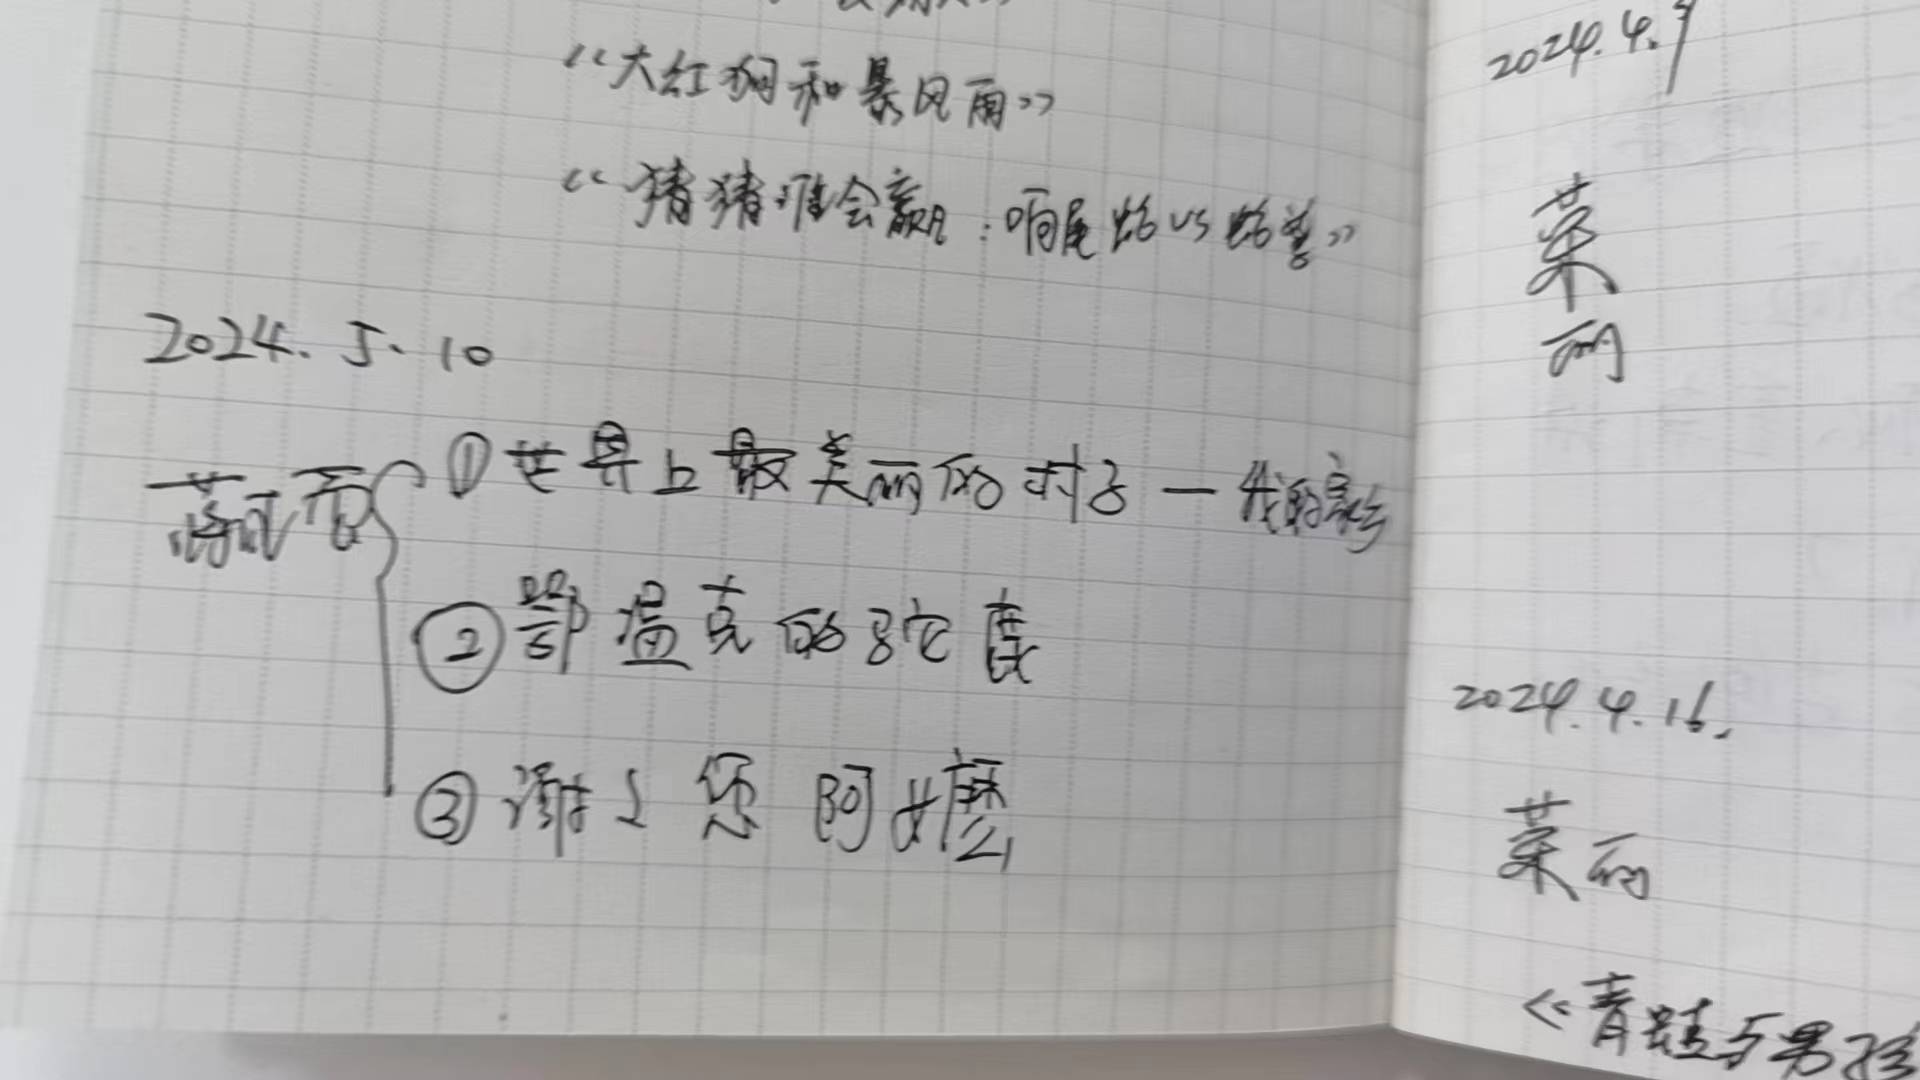 《大红狗和暴风雨》
《猪猪谁会赢:响尾蛇VS蛇鹫》
2024.5.10
①世界上最美丽的村子—我的家乡
②鄂温克的驼鹿
③谢谢您 阿嬷
2024.4.9
菜丽
2024.4.16.
菜丽
《青蛙与男孩